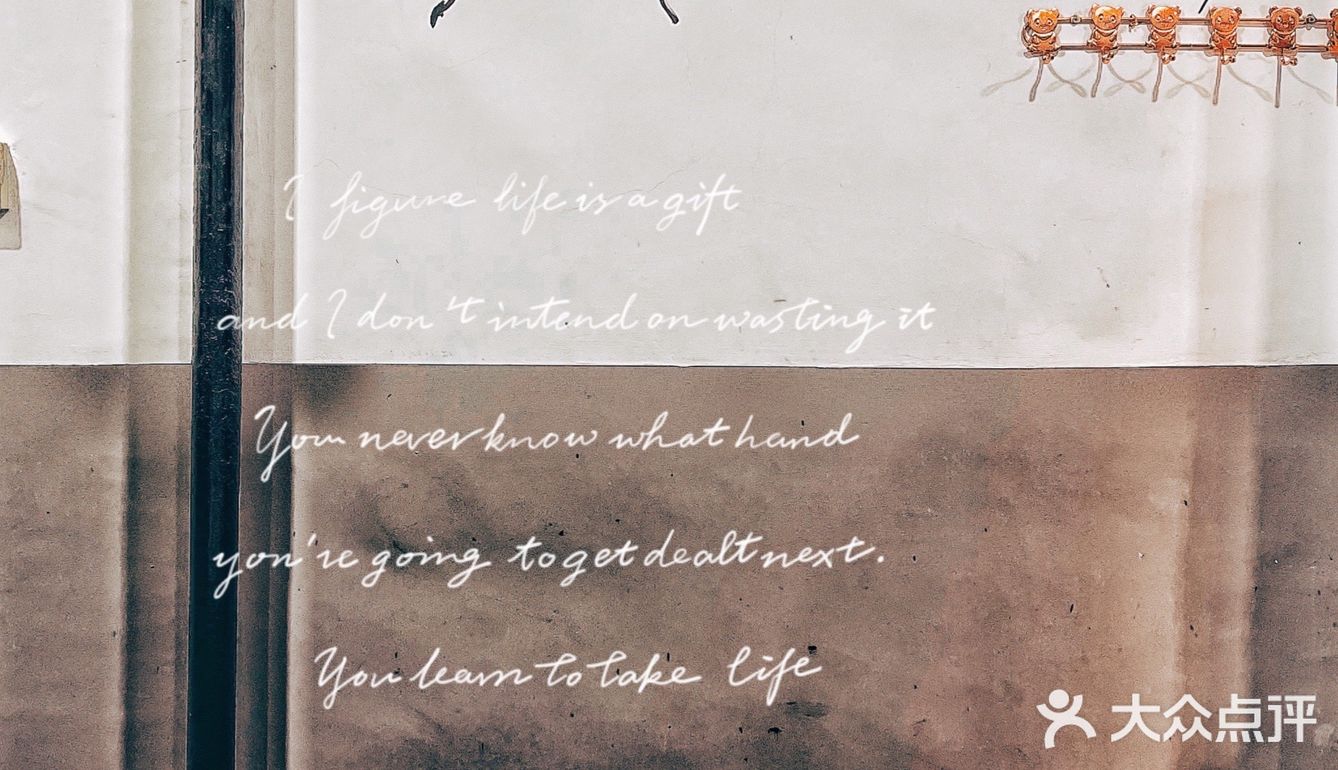 I figure life is a gift
and I don't intend on wasting it
You never know what hand
you're going to get dealt next.
You learn to take life
大众点评